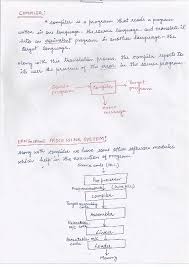 COMPILER:
* compiler is a program that reads a program
written in one language - the source language and translate it
into an equivalent program in another language - the
target language.
along with this translation process, the compiler reports to
its user the presence of the error in the source program
Source program → Compiler → Target program
error message
LANGUAGE PROCESSING SYSTEM:
along with compiler we have some other software modules
which help in the execution of program
Source code (HLL)
Pre-processor
(Pure HLL)
Compiler
Target assembly code
Assembler
code
Linker
code
Loader
Memory